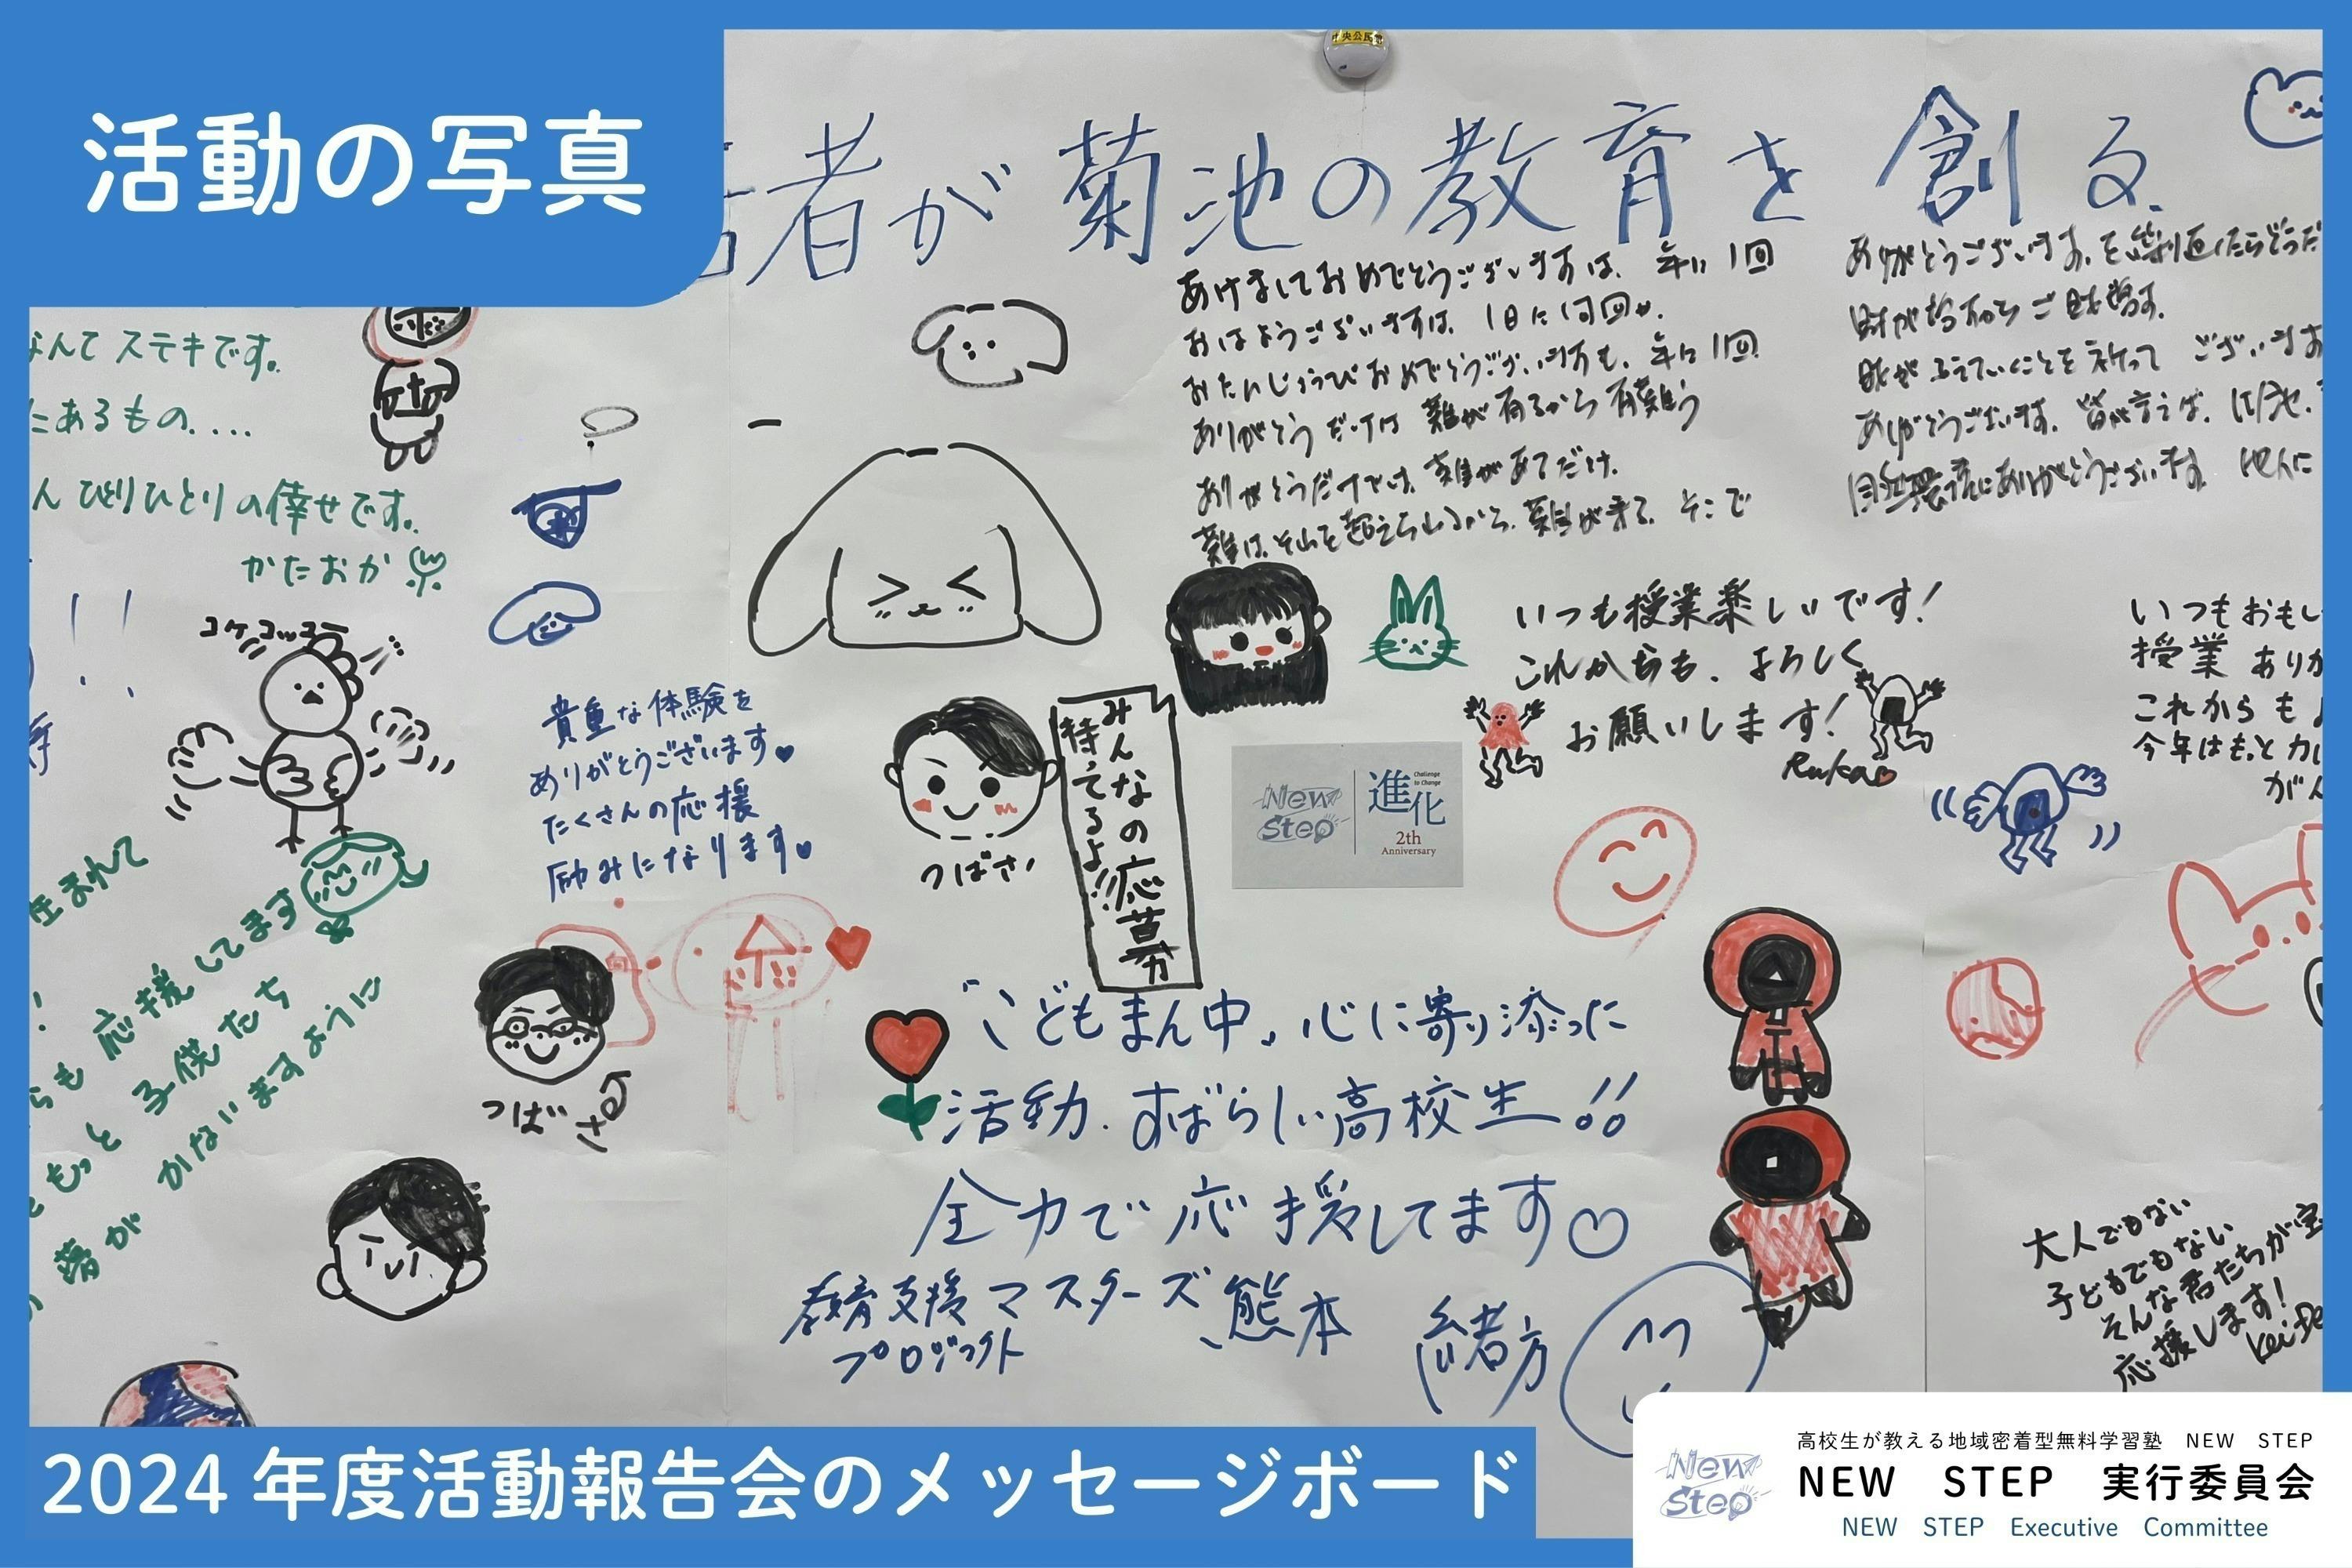 活動の写真
中央公民館
者が菊池の教育を創る.
なんてステキです。
にあるもの....
ん ひとりひとりの倖せです。
かたおか
コケコッコー
貴重な体験を
ありがとうございます
たくさんの応援
励みになります
あけましておめでとうございますは、年に1回
おはようございますは、1日に1回か、
おたんじょうびおめでとうございます方も、年に1回
ありがとうだけは 難が有るから有難う
ありがとうだけでは、難があてだけ。
ありがとうございます。を
ございます
ありがとうございます。
にありがとうございます。
いつも授業楽しいです!
これからも、よろしく
お願いします!
Ruka
いつもおもし
授業 ありが
これからも
今年はもっと
がん
みんなの応募
待てるよ!!
つばさ
New Step
進化
Challenge to Change
2th
Anniversary
生まれて
らも 応援してます
もっと 子供たち
夢が かないますように
つばさ
「こどもまん中」心に寄り添った
活動.すばらしい高校生!!
全力で応援してます♡
教育支援マスターズ、熊本
プロジェクト
緒方
大人でもない
子どもでもない
そんな君たちが宝
応援します!
2024 年度活動報告会のメッセージボード
New Step
高校生が教える地域密着型無料学習塾 NEW STEP
NEW STEP 実行委員会
NEW STEP Executive Committee